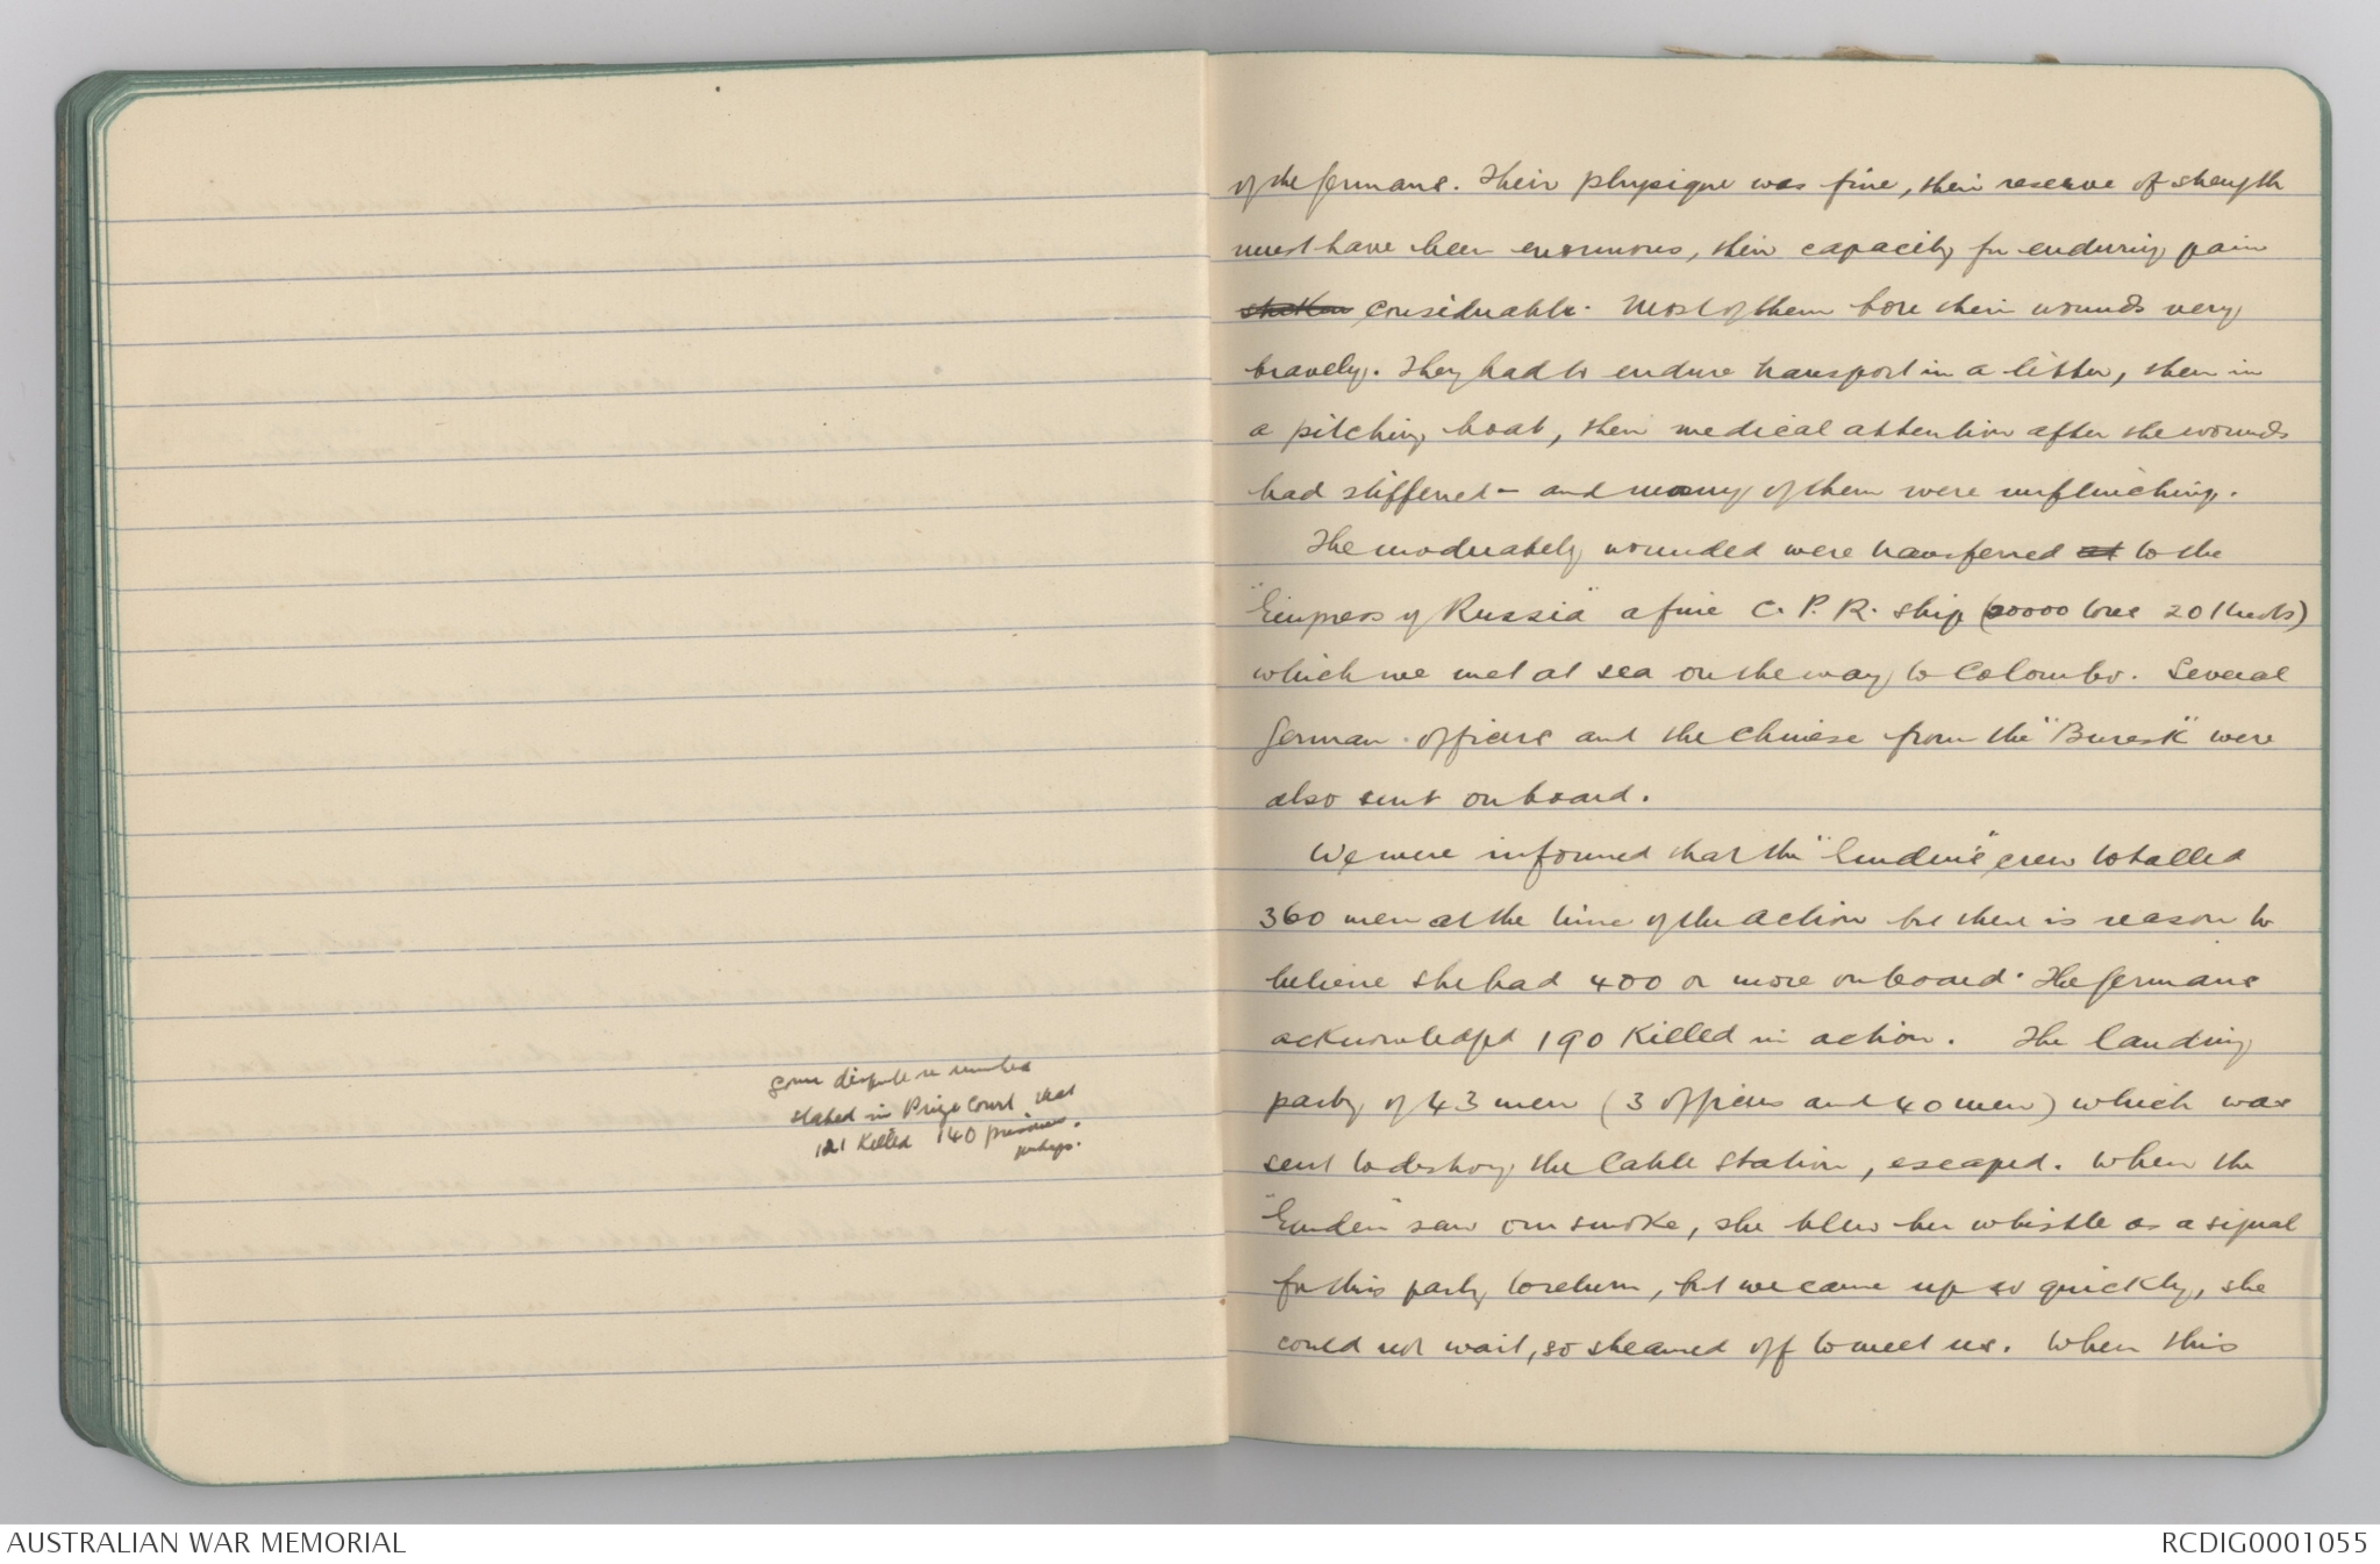 some dispute re number
stated in Prize Court that
121 killed 140 prisoners.
perhaps.
of the Germans. Their physique was fine, their reserve of strength
must have been enormous, their capacity for enduring pain
considerable. Most of them bore their wounds very
bravely. They had to endure transport in a litter, then in
a pitching boat, then medical attention after the wounds
had stiffened - and many of them were unflinching.
The moderately wounded were transferred at to the
"Empress of Russia" a fine C.P.R. ship (20000 tons 20 knots)
which we met at sea on the way to Colombo. Several
German officers and the Chinese from the "Buresk" were
also sent on board.
We were informed that the "Emden's" crew totalled
360 men at the time of the action but there is reason to
believe she had 400 or more on board. The Germans
acknowledged 190 killed in action. The landing
party of 43 men (3 officers and 40 men) which was
sent to destroy the Cable Station, escaped. When the
"Emden" saw our smoke, she blew her whistle as a signal
for this party to return, but we came up so quickly, she
could not wait, so steamed off to meet us. When this
AUSTRALIAN WAR MEMORIAL
RCDIG0001055